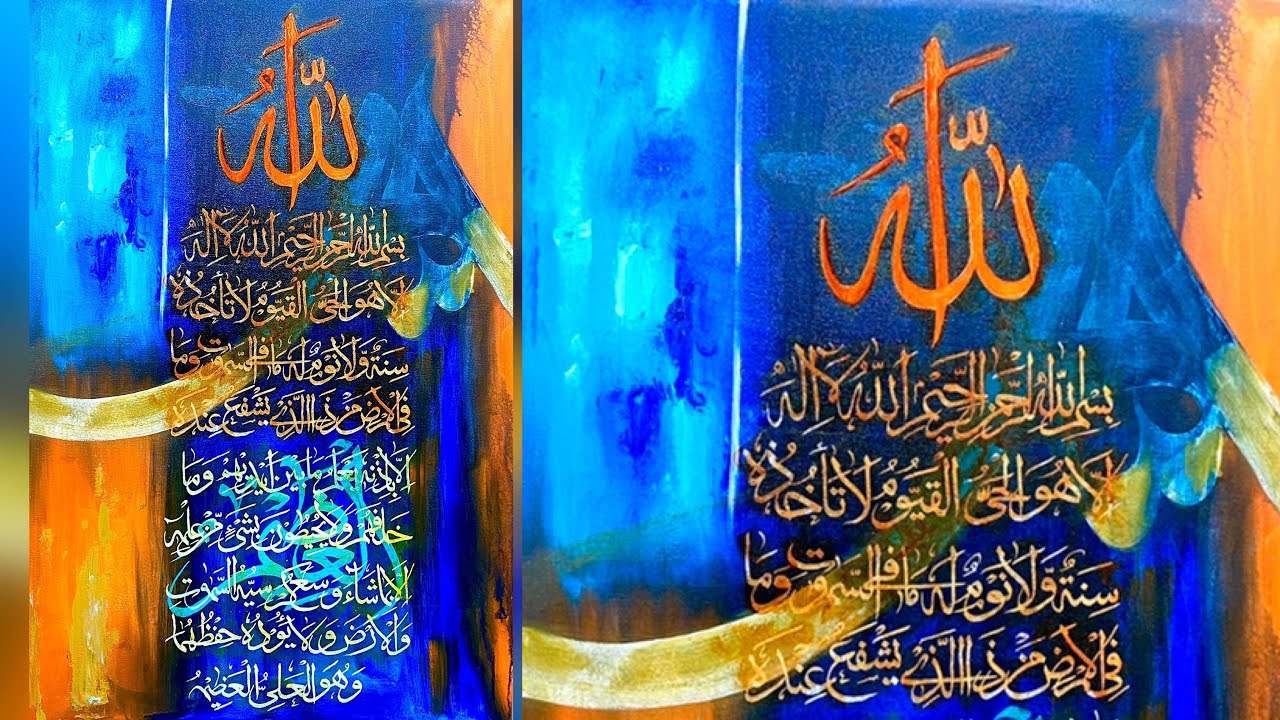 اللّٰهُ
بسم اللّٰه الرحمن الرحيم اللّٰهُ لَا اِلٰهَ
اِلَّا هُوَ الحَيُّ القَيُّومُ لَا تَأخُذُهٗ
سِنَةٌ وَّلَا نَوْمٌ لَهٗ مَا فِي السَّمٰوٰتِ وَمَا
فِي الْاَرْضِ مَنْ ذَا الَّذِيْ يَشْفَعُ عِنْدَهٗ
اِلَّا بِاِذْنِهٖ يَعْلَمُ مَا بَيْنَ اَيْدِيْهِمْ وَمَا
خَلْفَهُمْ وَلَا يُحِيْطُوْنَ بِشَيْءٍ مِّنْ عِلْمِهٖ
اِلَّا بِمَا شَاءَ وَسِعَ كُرْسِيُّهُ السَّمٰوٰتِ
وَالْاَرْضَ وَلَا يَؤُدُهٗ حِفْظُهُمَا
وَهُوَ الْعَلِيُّ الْعَظِيْمُ
اللّٰهُ
بسم اللّٰه الرحمن الرحيم اللّٰهُ لَا اِلٰهَ
اِلَّا هُوَ الحَيُّ القَيُّومُ لَا تَأخُذُهٗ
سِنَةٌ وَّلَا نَوْمٌ لَهٗ مَا فِي السَّمٰوٰتِ وَمَا
فِي الْاَرْضِ مَنْ ذَا الَّذِيْ يَشْفَعُ عِنْدَهٗ